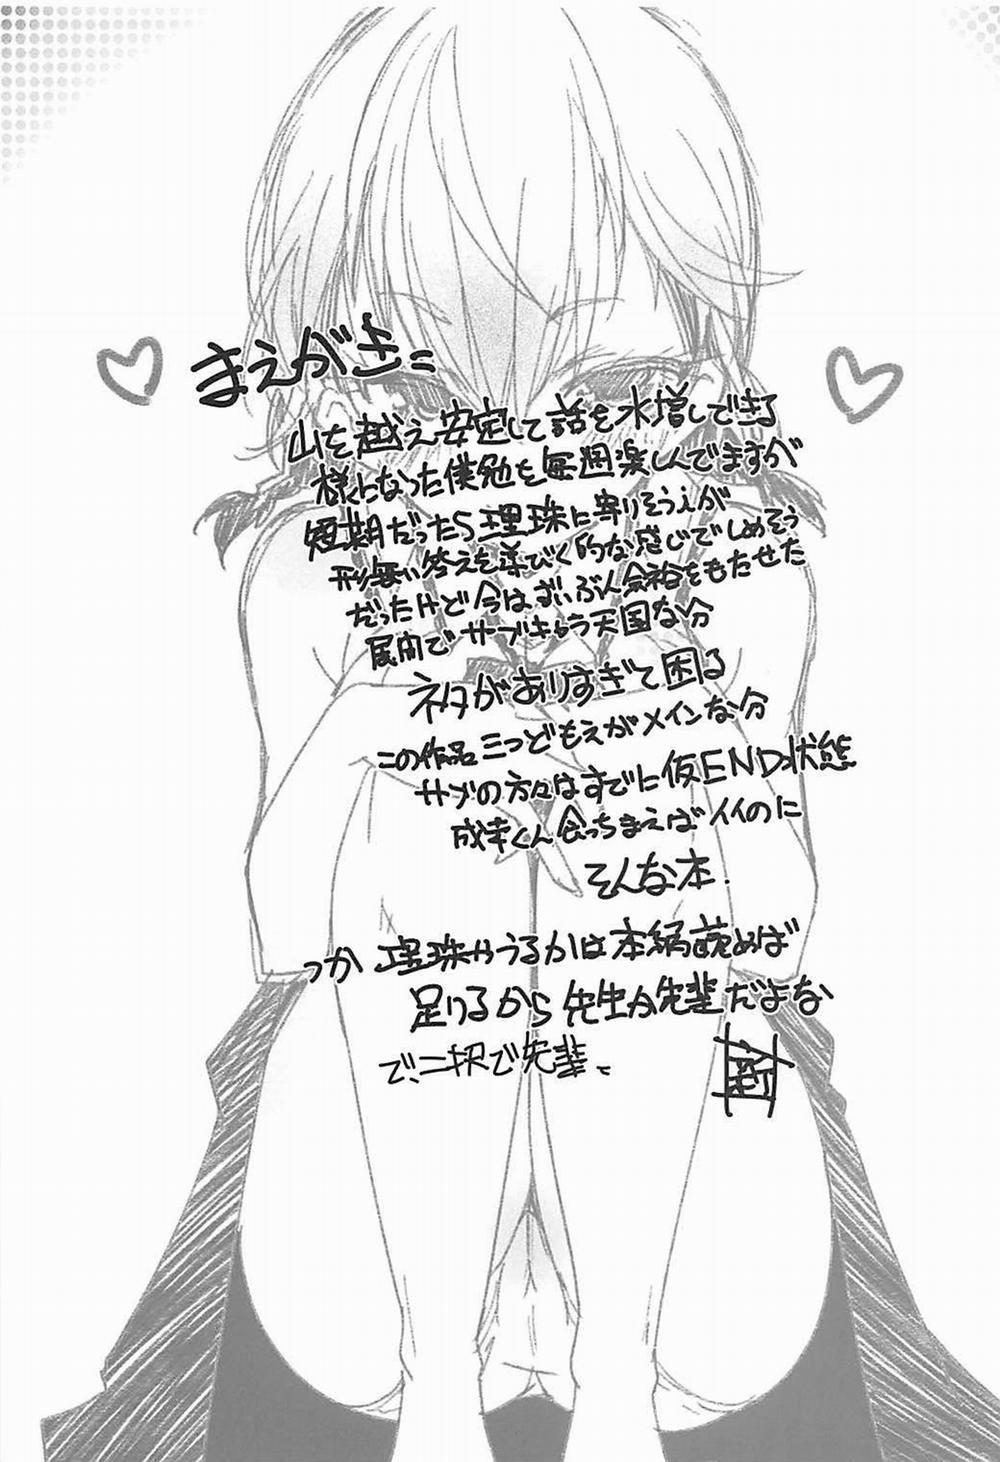 まえがき
山を越え安定して話を水増しできる
様になった僕勉を毎週楽しんでますが
短期だったら理珠に寄りそうが
形無い答えを導びく的な感じでしめそう
だったけど今はずいぶん余裕をもたせた
展開でサブきゃら天国な分
ネタがありすぎて困る
この作品三つどもえがメインな分
サブの方々はすでに仮END状態
成幸くん会っちまえばイイのに
そんな本.
つか 理珠やうるかは本編読めば
足りるから先生か先輩だよな
で、二択で先輩。